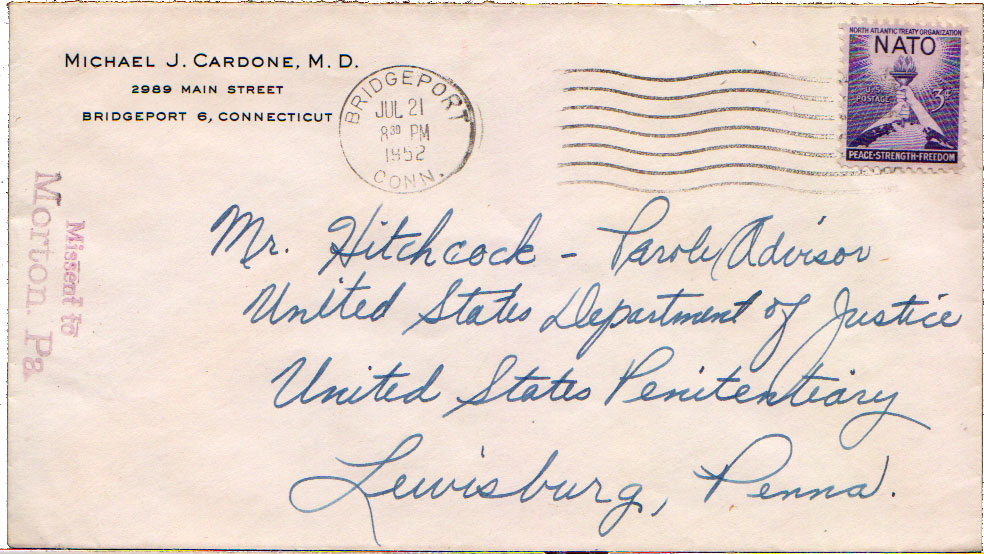 MICHAEL J. CARDONE, M. D.
2989 MAIN STREET
BRIDGEPORT 6, CONNECTICUT
BRIDGEPORT
JUL 21
8 30 PM
1952
CONN.
NORTH ATLANTIC TREATY ORGANIZATION
NATO
U.S.
POSTAGE
3¢
PEACE·STRENGTH·FREEDOM
Missent to
Morton. Pa.
Mr. Hitchcock - Parole Advisor
United States Department of Justice
United States Penitentiary
Lewisburg, Penna.